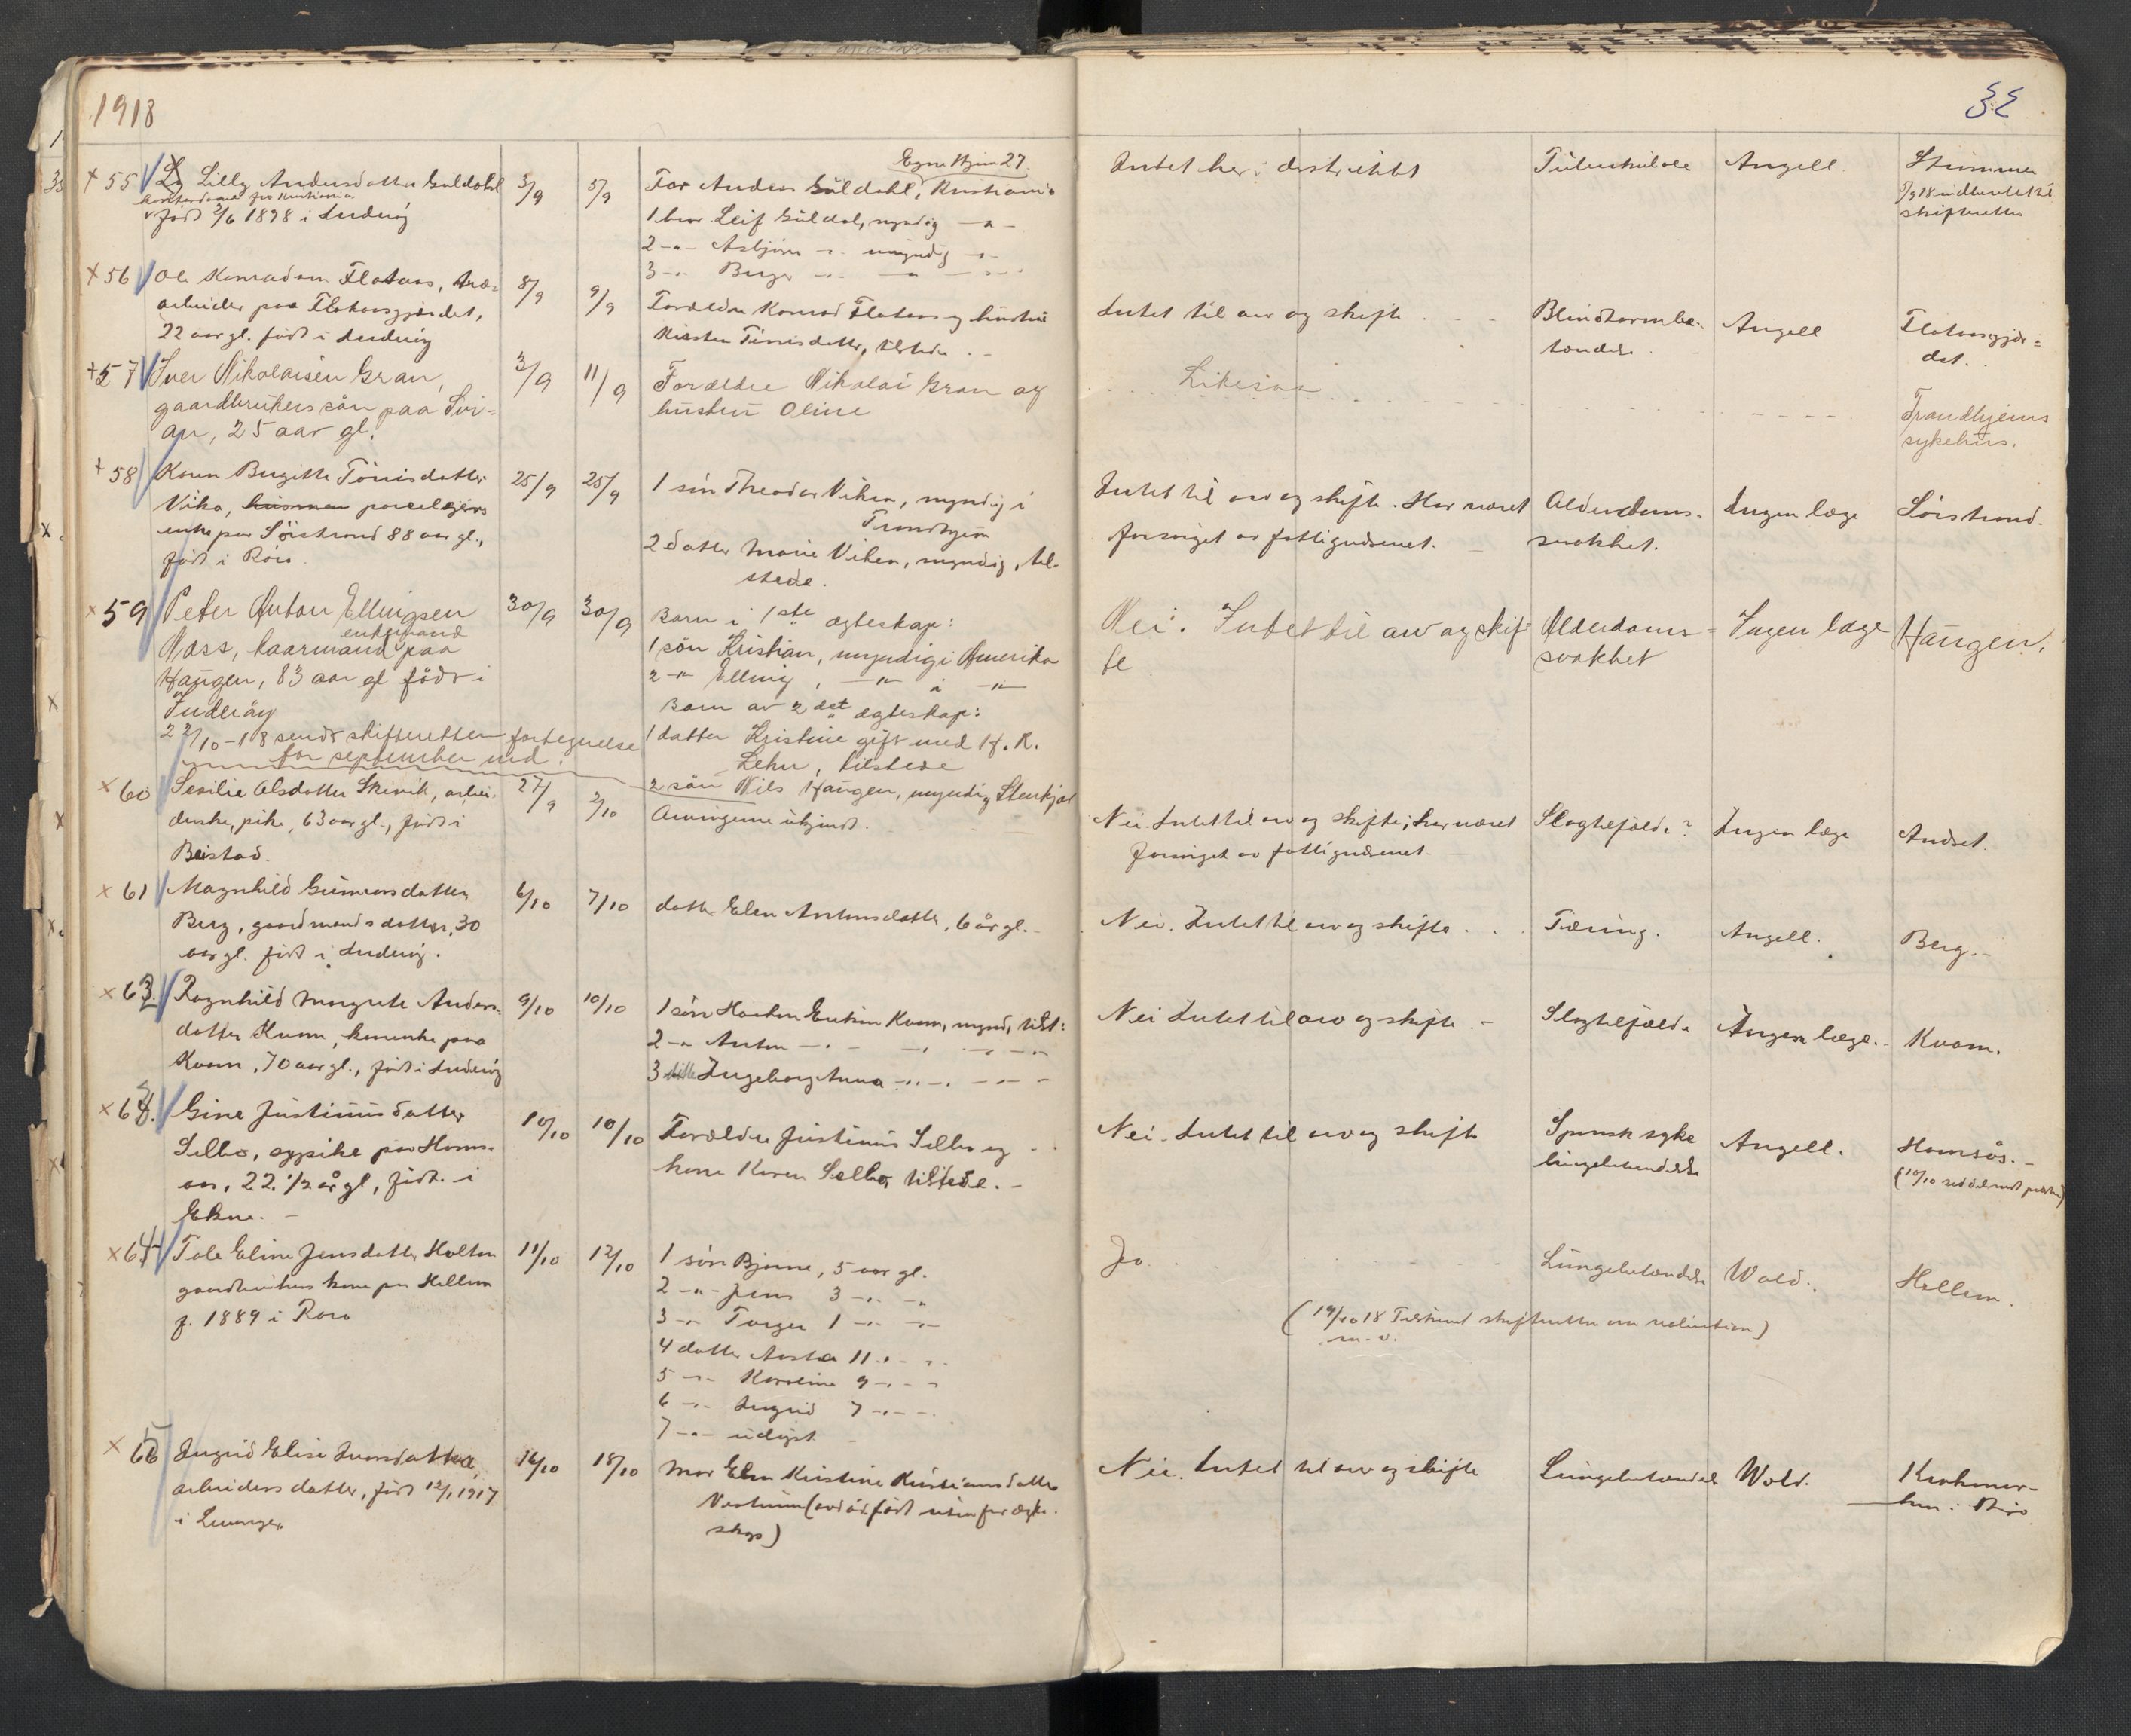 1918
32
+ 55 Lilly Andersdatter Guldahl
kontordame fra Kristiania
født 2/6 1898 i Inderøy
3/9
5/9
Egne Hjem 27.
Far Anders Guldahl, Kristiania
1 bror Leif Guldal, myndig -"-
2 -"- Asbjørn -"- umyndig -"-
3 -"- Birger -"- -"- -"-
Intet her i distriktet
Tuberkulose
Angell
Strømmen
5/9 18 indberettet til
skifteretten
+ 56 Ole Konradsen Flataas, træ-
arbeider paa Flataasgjærdet,
22 aar gl. født i Inderøy
8/9
9/9
Forældre Konrad Flataas og hustru
Kirsten Tønnisdatter, tilstede.
Intet til arv og skifte
Blindtarmbe-
tændelse
Angell
Flataasgjær-
det.
+ 57 Iver Nikolaisen Gran,
gaardbrukers søn paa Svi-
an, 25 aar gl.
3/9
11/9
Forældre Nikolai Gran og
hustru Oline
Likesaa
Trondhjems
sykehus.
+ 58 Karen Birgitte Tønnisdatter
Vika, husman parceleiers
enke paa Sørstrand 88 aar gl.,
født i Røra
25/9
25/9
1 søn Theodor Viken, myndig i
Trondhjem
2 datter Marie Viken, myndig, til-
stede.
Intet til arv og skifte. Har været
forsørget av fattigvæsenet.
Alderdoms-
svakhet.
Ingen læge
Sørstrand.
× 59 Peter Anton Ellingsen
enkemand
Næss, kaarmand paa
Haugen, 83 aar gl født i
Inderøy
30/9
30/9
Barn i 1ste ægteskap:
1 søn Kristian, myndig i Amerika
2 -"- Elling, -"- i -"-
Barn av 2det ægteskap:
1 datter Kristine gift med H. K.
Lehn, tilstede
2 søn Nils Haugen, myndig Stenkjær
Nei. Intet til arv og skif-
te
Alderdoms-
svakhet
Ingen læge
Haugen.
22/10-18 sendt skifteretten fortegnelse
for september md.
× 60 Sesilie Olsdatter Skjevik, arbei-
derske, pike, 63 aar gl., født i
Beistad.
27/9
2/10
Arvingerne ukjendt.
Nei. Intet til arv og skifte; har været
forsørget av fattigvæsenet
Slagtilfælde?
Ingen læge
Andset.
× 61 Magnhild Gunnersdatter
Berg, gaardmandsdatter, 30
aar gl. født i Inderøy.
6/10
7/10
datter Elen Antonsdatter, 6 år gl.
Nei. Intet til arv og skifte.
Tæring.
Angell.
Berg.
× 62. Ragnhild Margrete Anders-
datter Kvam, kaarenke paa
Kvam, 70 aar gl., født i Inderøy
9/10
10/10
1 søn Haakon Kvam, mynd, tilst:
2 -"- Anton -"- -"- -"-
3 datter Ingeborg Anna -"- -"- -"-
Nei Intet til arv og skifte.
Slagtilfælde
Ingen læge.
Kvam.
× 63. Gine Justinusdatter
Selbo, sypike paa Hams-
aas, 22 1/2 år gl, født i
Ekne.
10/10
10/10
Forældre Justinus Selbo og
kone Karen Selbo, tilstede.
Nei. Intet til arv og skifte
Spansk syke
lungebetændelse
Angell.
Hamsås.
× 64 Tale Eline Jensdatter Holten
gaardbrukers kone paa Hellem
f. 1889 i Røra
11/10
12/10
1 søn Bjarne, 5 aar gl.
2 -"- Jens 3 -"- -"-
3 -"- Torger 1 -"- -"-
4 datter Aasta 11 -"- -"-
5 -"- Karoline 9 -"- -"-
6 -"- Ingrid 7 -"- -"-
7 -"- udøpt
Ja.
Lungebetændelse
Wold.
Hellem.
(19/10 18 Tilskrevet skifteretten om
m. v.
× 65 Ingrid Elise Ivarsdatter,
arbeiders datter, født 12/1 1917
i Levanger
16/10
18/10
Mor Elen Kristine Kristiansdatter
(avdøde født utenfor ægte-
skap)
Nei. Intet til arv og skifte
Lungebetændelse
Wold.